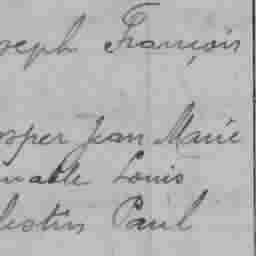 oseph François
osper Jean Marie
mable Louis
lestin Paul